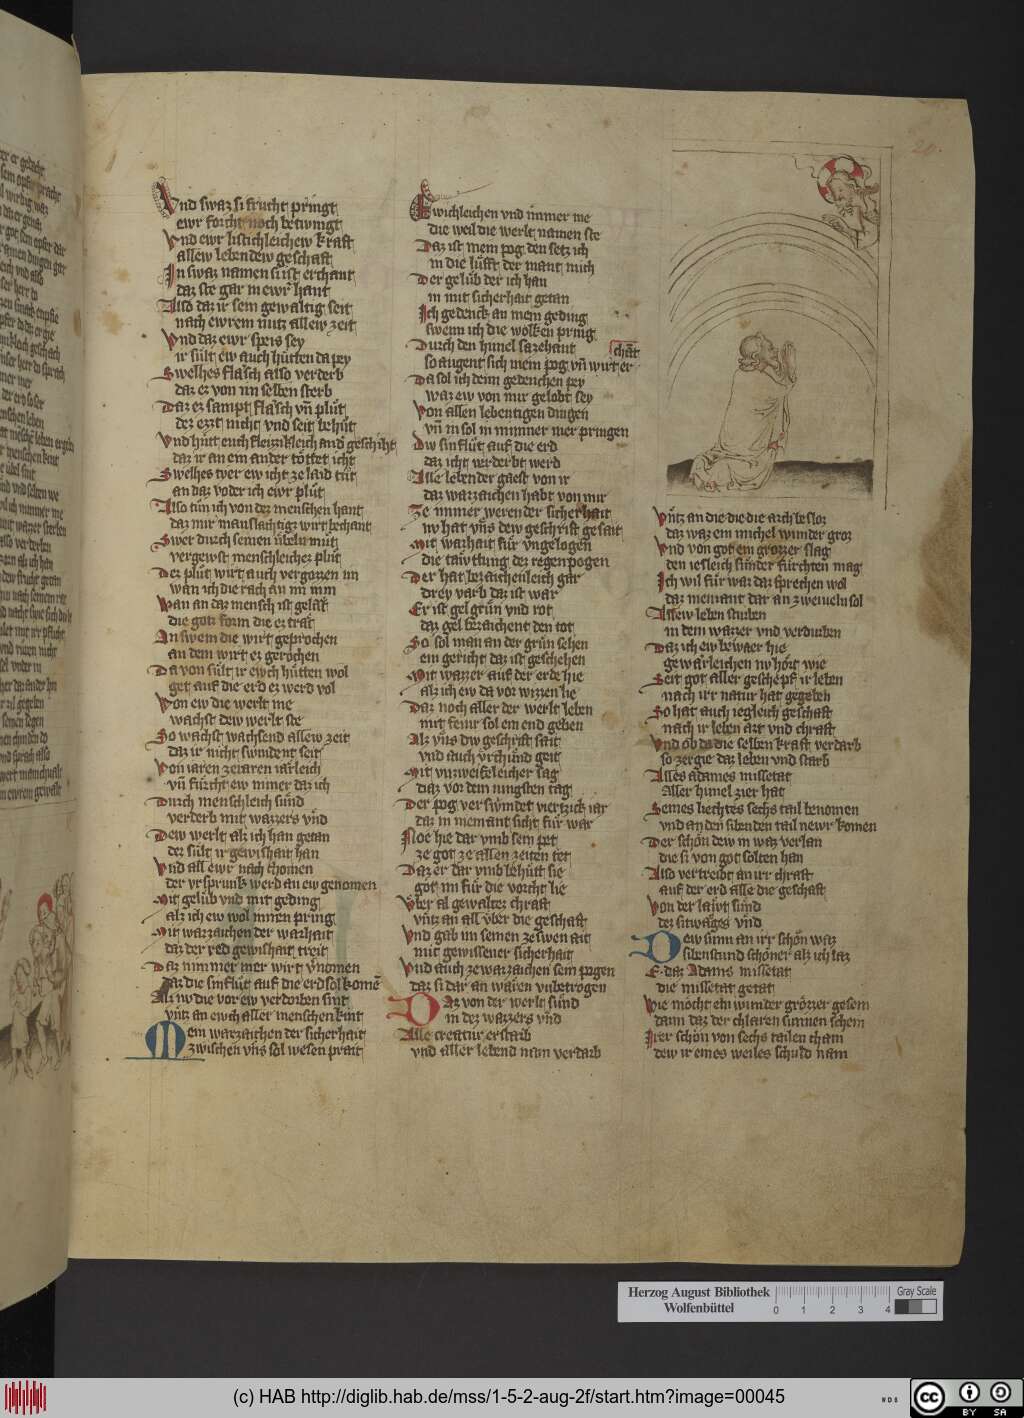 Vnd swaz si frucht pringt
ewr forcht noch betwingt
Vnd ewr listichleichew kraft
allew lebendew geschaft
In swaz namen si ist erchant
daz ste gar in ewr hant
Also daz ir sein gewaltig seit
nach ewrem nutz allew zeit
Vnd daz ewr speis sey
ir sult ew auch hütten da pey
Swelhes flaisch also verderb
daz ez von im selben sterb
Daz ez sampt flaisch vn plut
dez ezzt nicht vnd seit behüt
Vnd hütt euch fleizzikleich
daz ir an ein ander töttet icht
Swelhes twer ew icht ze laid tüt
an daz voder ich ewr plüt
Also tün ich von dez menschen hant
daz mir manslachtigz wirt bechant
Swer durch seinen übeln müt
vergewst menschleichez plüt
Dez plüt wirt auch vergozzen im
wan ich die rach an im nim
Wan an daz mensch ist geleit
die gotz form die ez trait
An swem die wirt geprochen
an dem wirt ez gerochen
Da von sült ir ewch hütten wol
get auf die erd ez werd vol
Von ew die werlt me
wachst dew werlt ste
So wachst wachsend allew zeit
daz ir nicht swindent seit
Von iaren ze iaren iärleich
vn fürcht ew immer daz ich
Durch menschleich sünd
verderb mit wazzers vnd
Dew werlt alz ich han getan
dez sült ir gewishait han
Vnd all ewr nach chomen
der vrsprunk werd an ew genomen
Mit gelüb vnd mit geding
alz ich ew wol innen pring
Mit warzaichen der warhait
daz der red gewishait treit
Daz nimmer mer wirt vernomen
daz die sinflüt auf die erd sol komē
Als nu die vor ew verdorben sint
vntz an ewch aller menschen kint
Mein warzaichen der sicherhait
zwischen vns sol wesen prait
Ewichleichen vnd immer me
die weil die werlt namen ste
Daz ist mein pog den setz ich
in die lüfft der mant mich
Der gelüb der ich han
in mit sicherhait getan
Ich gedenck an mein geding
swenn ich die wolken pring
Durch den himel sazehant
so augent sich mein pog vn wirt er
chāt
Da sol ich denn gedenchen pey
waz ew von mir gelobt sey
Von allen lebentigen dingen
vn in sol in nimmer mer pringen
Dw sinflüt auf die erd
daz icht verderbt werd
Alle lebender gaest von ir
daz warzaichen habt von mir
Ze immer werender sicherhait
nv hat vns dew geschrift gesait
Mit warhait für vngelogen
die tawttung dez regenpogen
Der hat bezaichenleich gar
drey varb daz ist war
Er ist gel grün vnd rot
daz gel bezaichent den tot
So sol man an der grün sehen
ein gericht daz ist geschehen
Mit wazzer auf der erde hie
alz ich ew da vor wizzen lie
Daz noch aller der werlt leben
mit feiur sol ein end geben
Alz vns dw geschrift sait
vnd auch vrchünd geit
Mit vnzweifeleicher sag
daz vor dem iungsten tag
Der pog verswindet viertzick iar
daz in niemant sicht für war
Noe hie dar vmb sein pet
ze got ze allen zeiten tet
Daz er dar vmb behütt sie
got im für die vorcht lie
Vber al gewaltez chraft
vntz an all vber die geschaft
Vnd gab im seinen zeswen ait
mit gewisseuer sicherhait
Vnd auch ze warzaichen sein pogen
daz si dar an wären vnbetrogen
Daz von der werlt sünd
in dez wazzers vnd
Alle creatür erstaib
vnd aller lebend nam verdarb
20.
Vntz an die die die arch beslos
daz waz ein michel wunder groz
Vnd von got ein grozzer slag
den iesleich sünder fürchten mag
Ich wil für war daz sprechen wol
daz niemant dar an zweiueln sol
Allew leben sturben
in dem wazzer vnd verdurben
Daz ich ew bewaer hie
gewärleichen nv hört wie
Seit got aller geschepf ir leben
nach irr natur hat gegeben
So hat auch iegleich geschaft
nach ir leben art vnd chraft
Vnd ob da die selben kraft verdarb
so zergie daz leben vnd starb
Alles adames missetat
Aller himel zier hat
Seines liechtes sechs tail benomen
vnd an den sibenden tail newr komen
Der schön dew in waz verlan
die si von got solten han
Also vertreibt an irr chraft
auf der erd alle die geschaft
Von der laidt sünd
dez sitwages vnd
Dew sunn an irr schön waz
sibenstund schöner alz ich laz
E daz Adams missetat
die missetat getat
Wie möcht ein wunder grözzer gesein
dann daz der chlaren sunnen schein
Irer schön von sechs tailen cham
dew ir eines weibes schuld nam
Herzog August Bibliothek
Wolfenbüttel
0 1 2 3 4
Gray Scale
(c) HAB http://diglib.hab.de/mss/1-5-2-aug-2f/start.htm?image=00045
WDB
cc BY SA